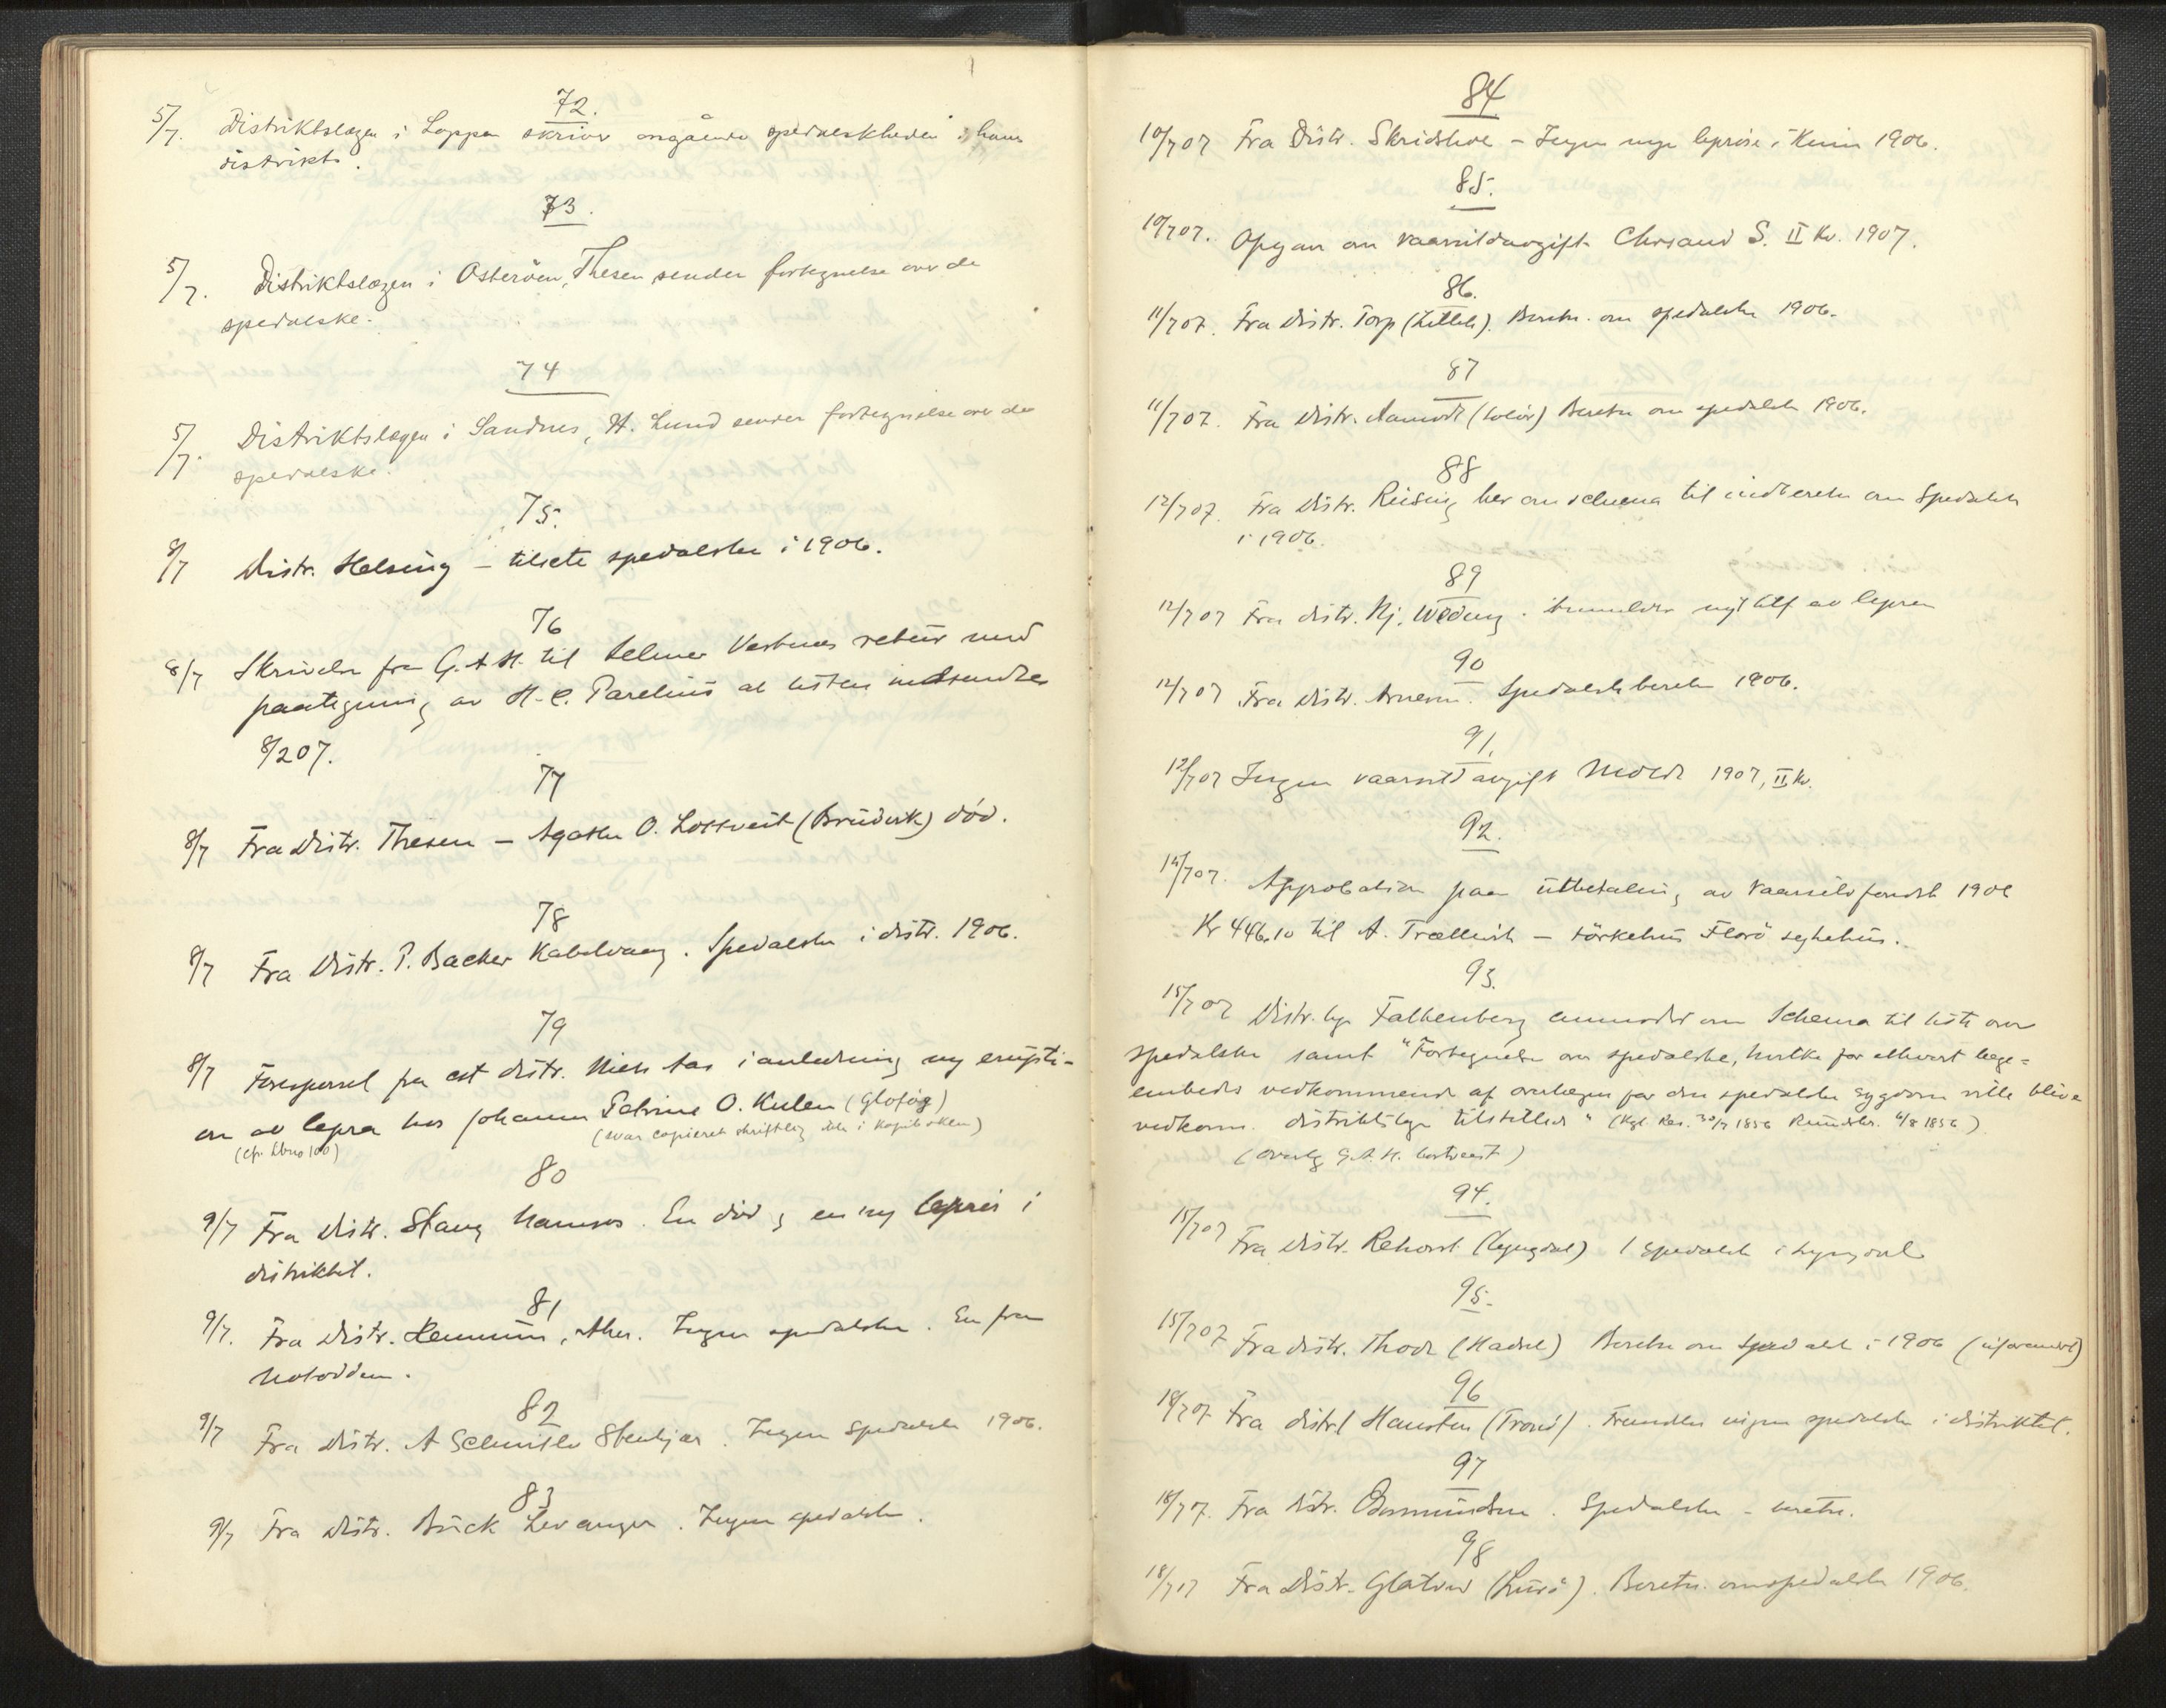 72.
5/7. Distriktslægen i Loppen skriver angående spedalskheden i hans
distrikt.
73.
5/7. Distriktslægen i Osterøen, Thesen sender fortegnelse over de
spedalske.
74
5/7. Distriktslægen i Sandnes, H. Lund sender fortegnelse over de
spedalske.
75.
8/7 Distr. Helsing – tilsete spedalske i 1906.
76
8/7 Skrivelse fra G. A. H. til Selmer Vestnes retur med
paategning av H. C. Parelius at listen indsendtes
8/2 07.
77
8/7 Fra Distr. Thesen – Agathe O. Lottveit (Bruvik) død.
78
8/7 Fra Distr. P. Backer Kabelvaag. Spedalske i distr. 1906.
79
8/7 Forespørsel fra cst distr. Niels Aas i anledning ny erupti-
on av lepra hos Johanne Petrine O. Kulen (Glofog)
(cfr. Lbno 100) (svar copieret skriftlig ikke i kopiboken)
80
9/7 Fra Distr. Stang Namsos. En død og en ny leprøs i
distriktet.
81
9/7. Fra Distr. , Aker. Ingen spedalske. En fra
Notodden.
82
9/7 Fra Distr. A Schnitler Stenkjær. Ingen Spedalske 1906.
83
9/7 Fra Distr. Buck Levanger. Ingen spedalske.
84
10/7 07 Fra Distr. Skridshol – Ingen nye leprøse i Kinn 1906.
85.
10/7 07. Opgave om vaarsildavgift Chrsand S. II Kv. 1907.
86.
11/7 07. Fra Distr. Torp (Lilleh). Beretn. om spedalske 1906.
87
11/7 07. Fra Distr. Aamodt (Solør) Beretn om spedalske 1906.
88
12/7 07. Fra Distr. Riising ber om schema til indberetn om Spedalsk
i 1906.
89
12/7 07 Fra distr. Kj. Wedding. Anmelder nyt tilf av lepra
90
12/7 07 Fra Distr. Arnesen. Spedalsk beretn 1906.
91.
12/7 07 Ingen vaarsildavgift Molde 1907, II Kv.
92.
14/7 07. Approbation paa utbetaling av Vaarsildfondet 1906
Kr 446.10 til A. Trællevik – tørkehus Florø sykehus.
93.
15/7 07 Distr. lge Falkenberg anmoder om Schema til liste over
spedalske samt "Fortegnelse over spedalske, hvilke for ethvert læge-
embedes vedkommende af overlægen for den spedalske Sygdom ville blive
vedkom. distriktslge tilstillede" (Kgl. Res. 30/7 1856 Rundskr. 4/8 1856)
(Overlg G. A. H. bortreist)
94.
15/7 07 Fra Distr. Rehorst (Lyngdal) 1 Spedalsk i Lyngdal
95.
15/7 07 Fra distr. Thode (Hadsel) Beretn om Spedalsk i 1906 (uforandret)
96
18/7 07. Fra distr. Hansteen (Trond). Fremdeles ingen spedalske i distriktet.
97
18/7 07. Fra Distr. Osmundsen. Spedalske – beretn.
98
18/7 07 Fra Distr. Glatved (Lurø). Beretn. om spedalske 1906.